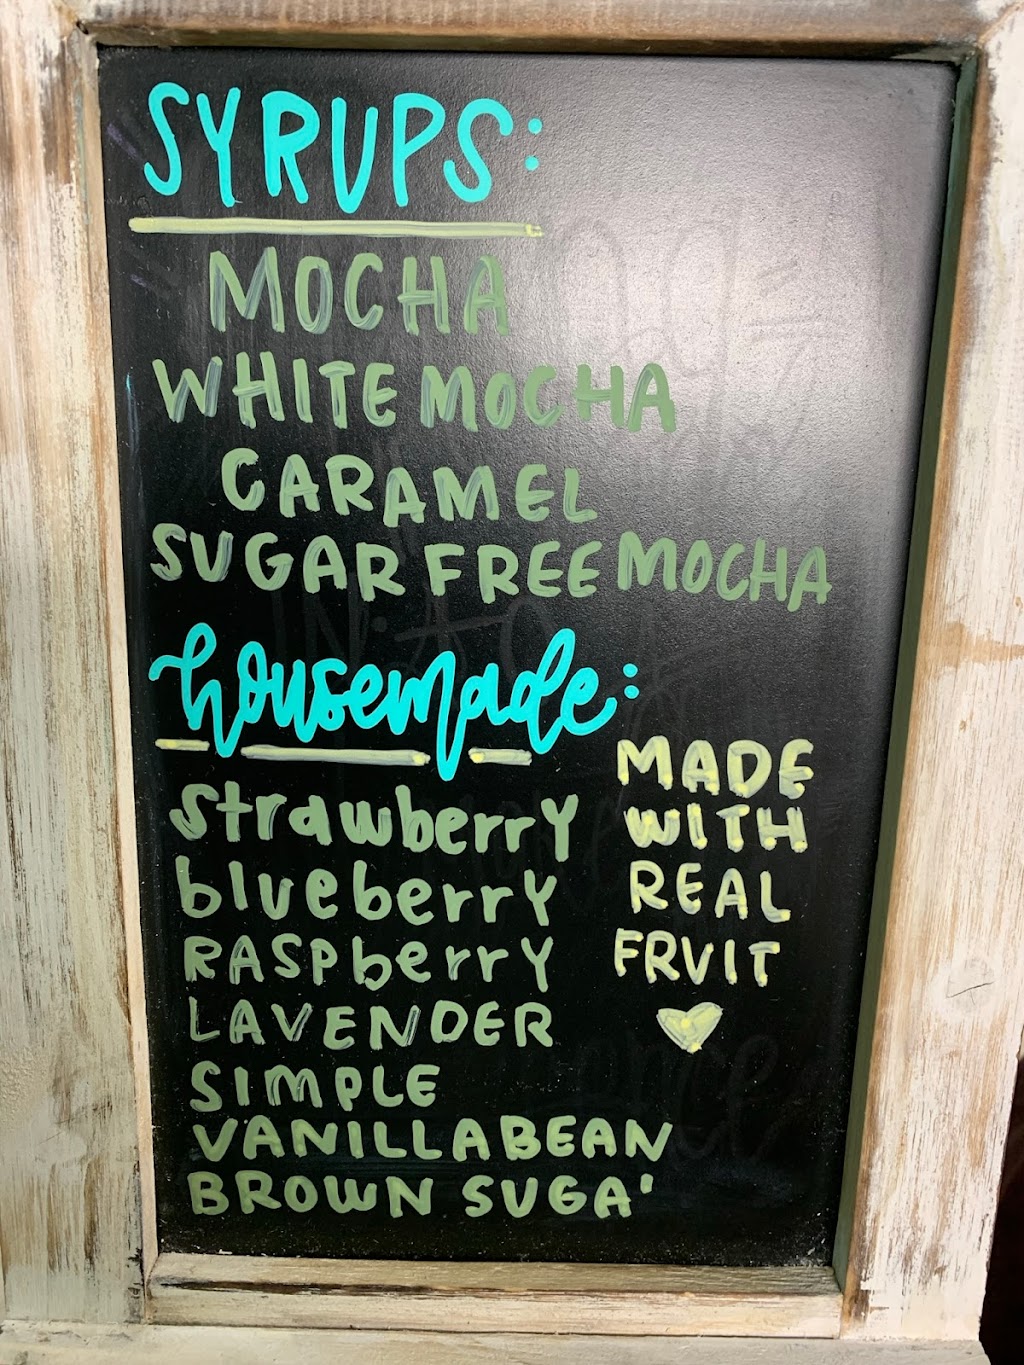 SYRUPS:
MOCHA
WHITE MOCHA
CARAMEL
SUGAR FREE MOCHA
housemade:
strawberry
blueberry
RASPberry
LAVENDER
SIMPLE
VANILLA BEAN
BROWN SUGA'
MADE
WITH
REAL
FRUIT